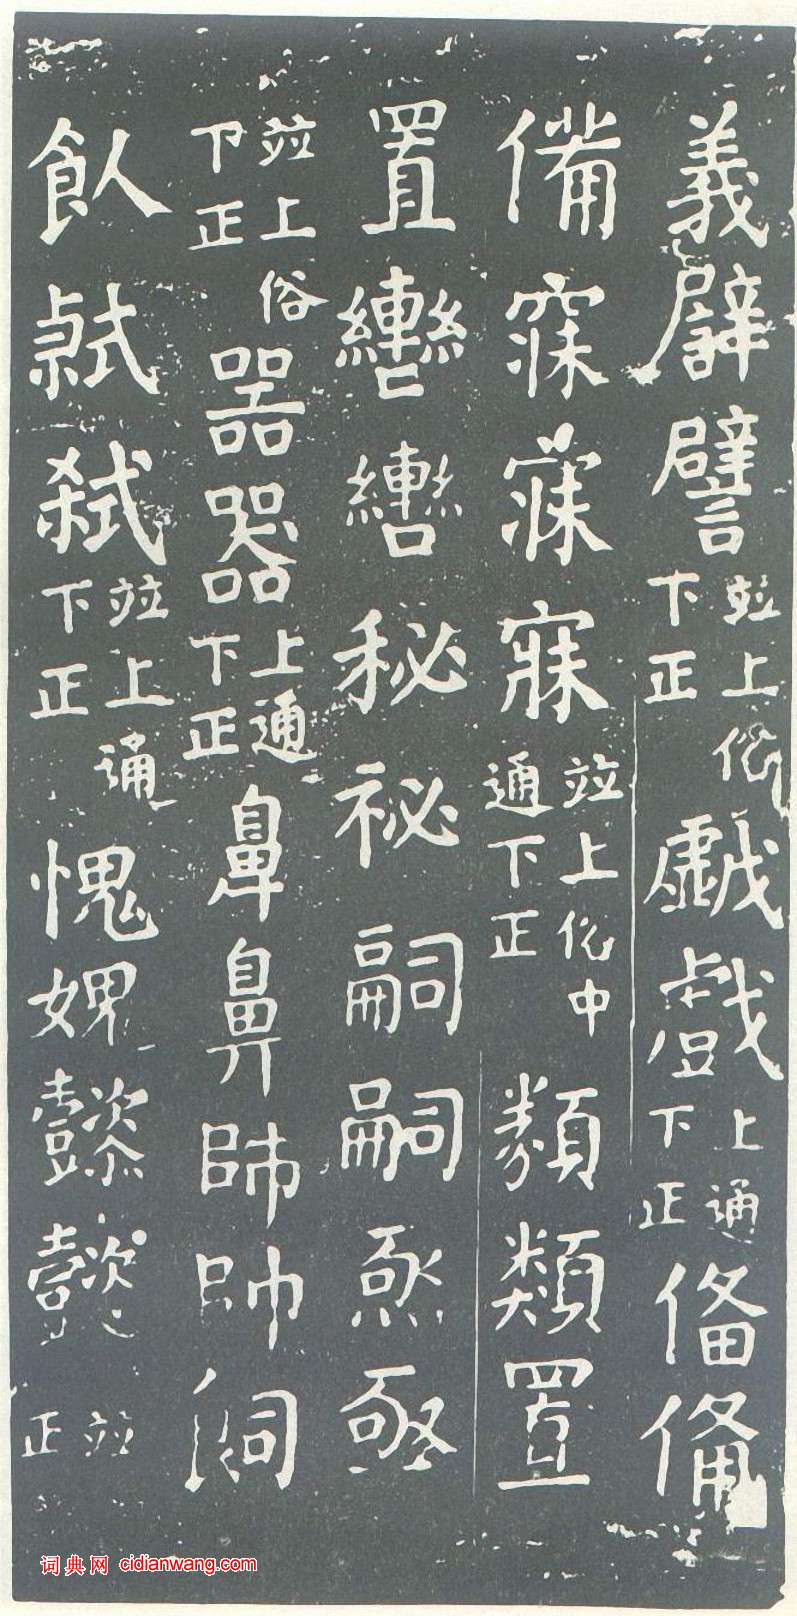 義譬並上俗下正戯戲上通下正俻偹
備寐並上俗中通下正類類置
置轡轡秘祕嗣嗣
並上俗下正噐器上通下正鼻鼻帥飼
飤弒並上通下正愧媿懿懿並正
词典网 cidianwang.com